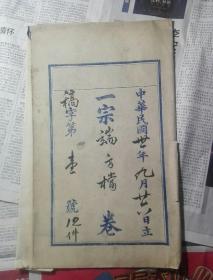 中華民國廿年九月廿八日立
一宗端方檔卷
稿字第壹號12件